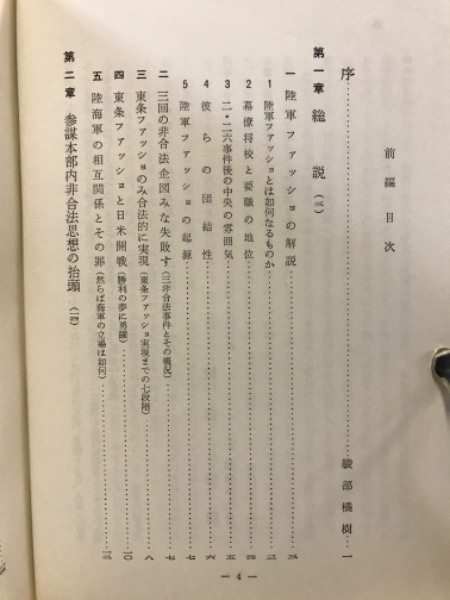 前編目次
序……綾部橘樹…一
第一章 総説(三)
一 陸軍ファッショの解説……三
1 陸軍ファッショとは如何なるものか……三
2 幕僚将校と要職の地位……四
3 二・二六事件後の中央の雰囲気……五
4 彼らの団結性……六
5 陸軍ファッショの起源……七
二 三回の非合法企図みな失敗す(三非合法事件とその概況)……七
三 東条ファッショのみ合法的に実現(東条ファッショ実現までの七段階)……八
四 東条ファッショと日米開戦(勝利の夢に勇躍)……一〇
五 陸海軍の相互関係とその罪(然らば海軍の立場は如何)……一三
第二章 参謀本部内非合法思想の抬頭(一四)
— 4 —